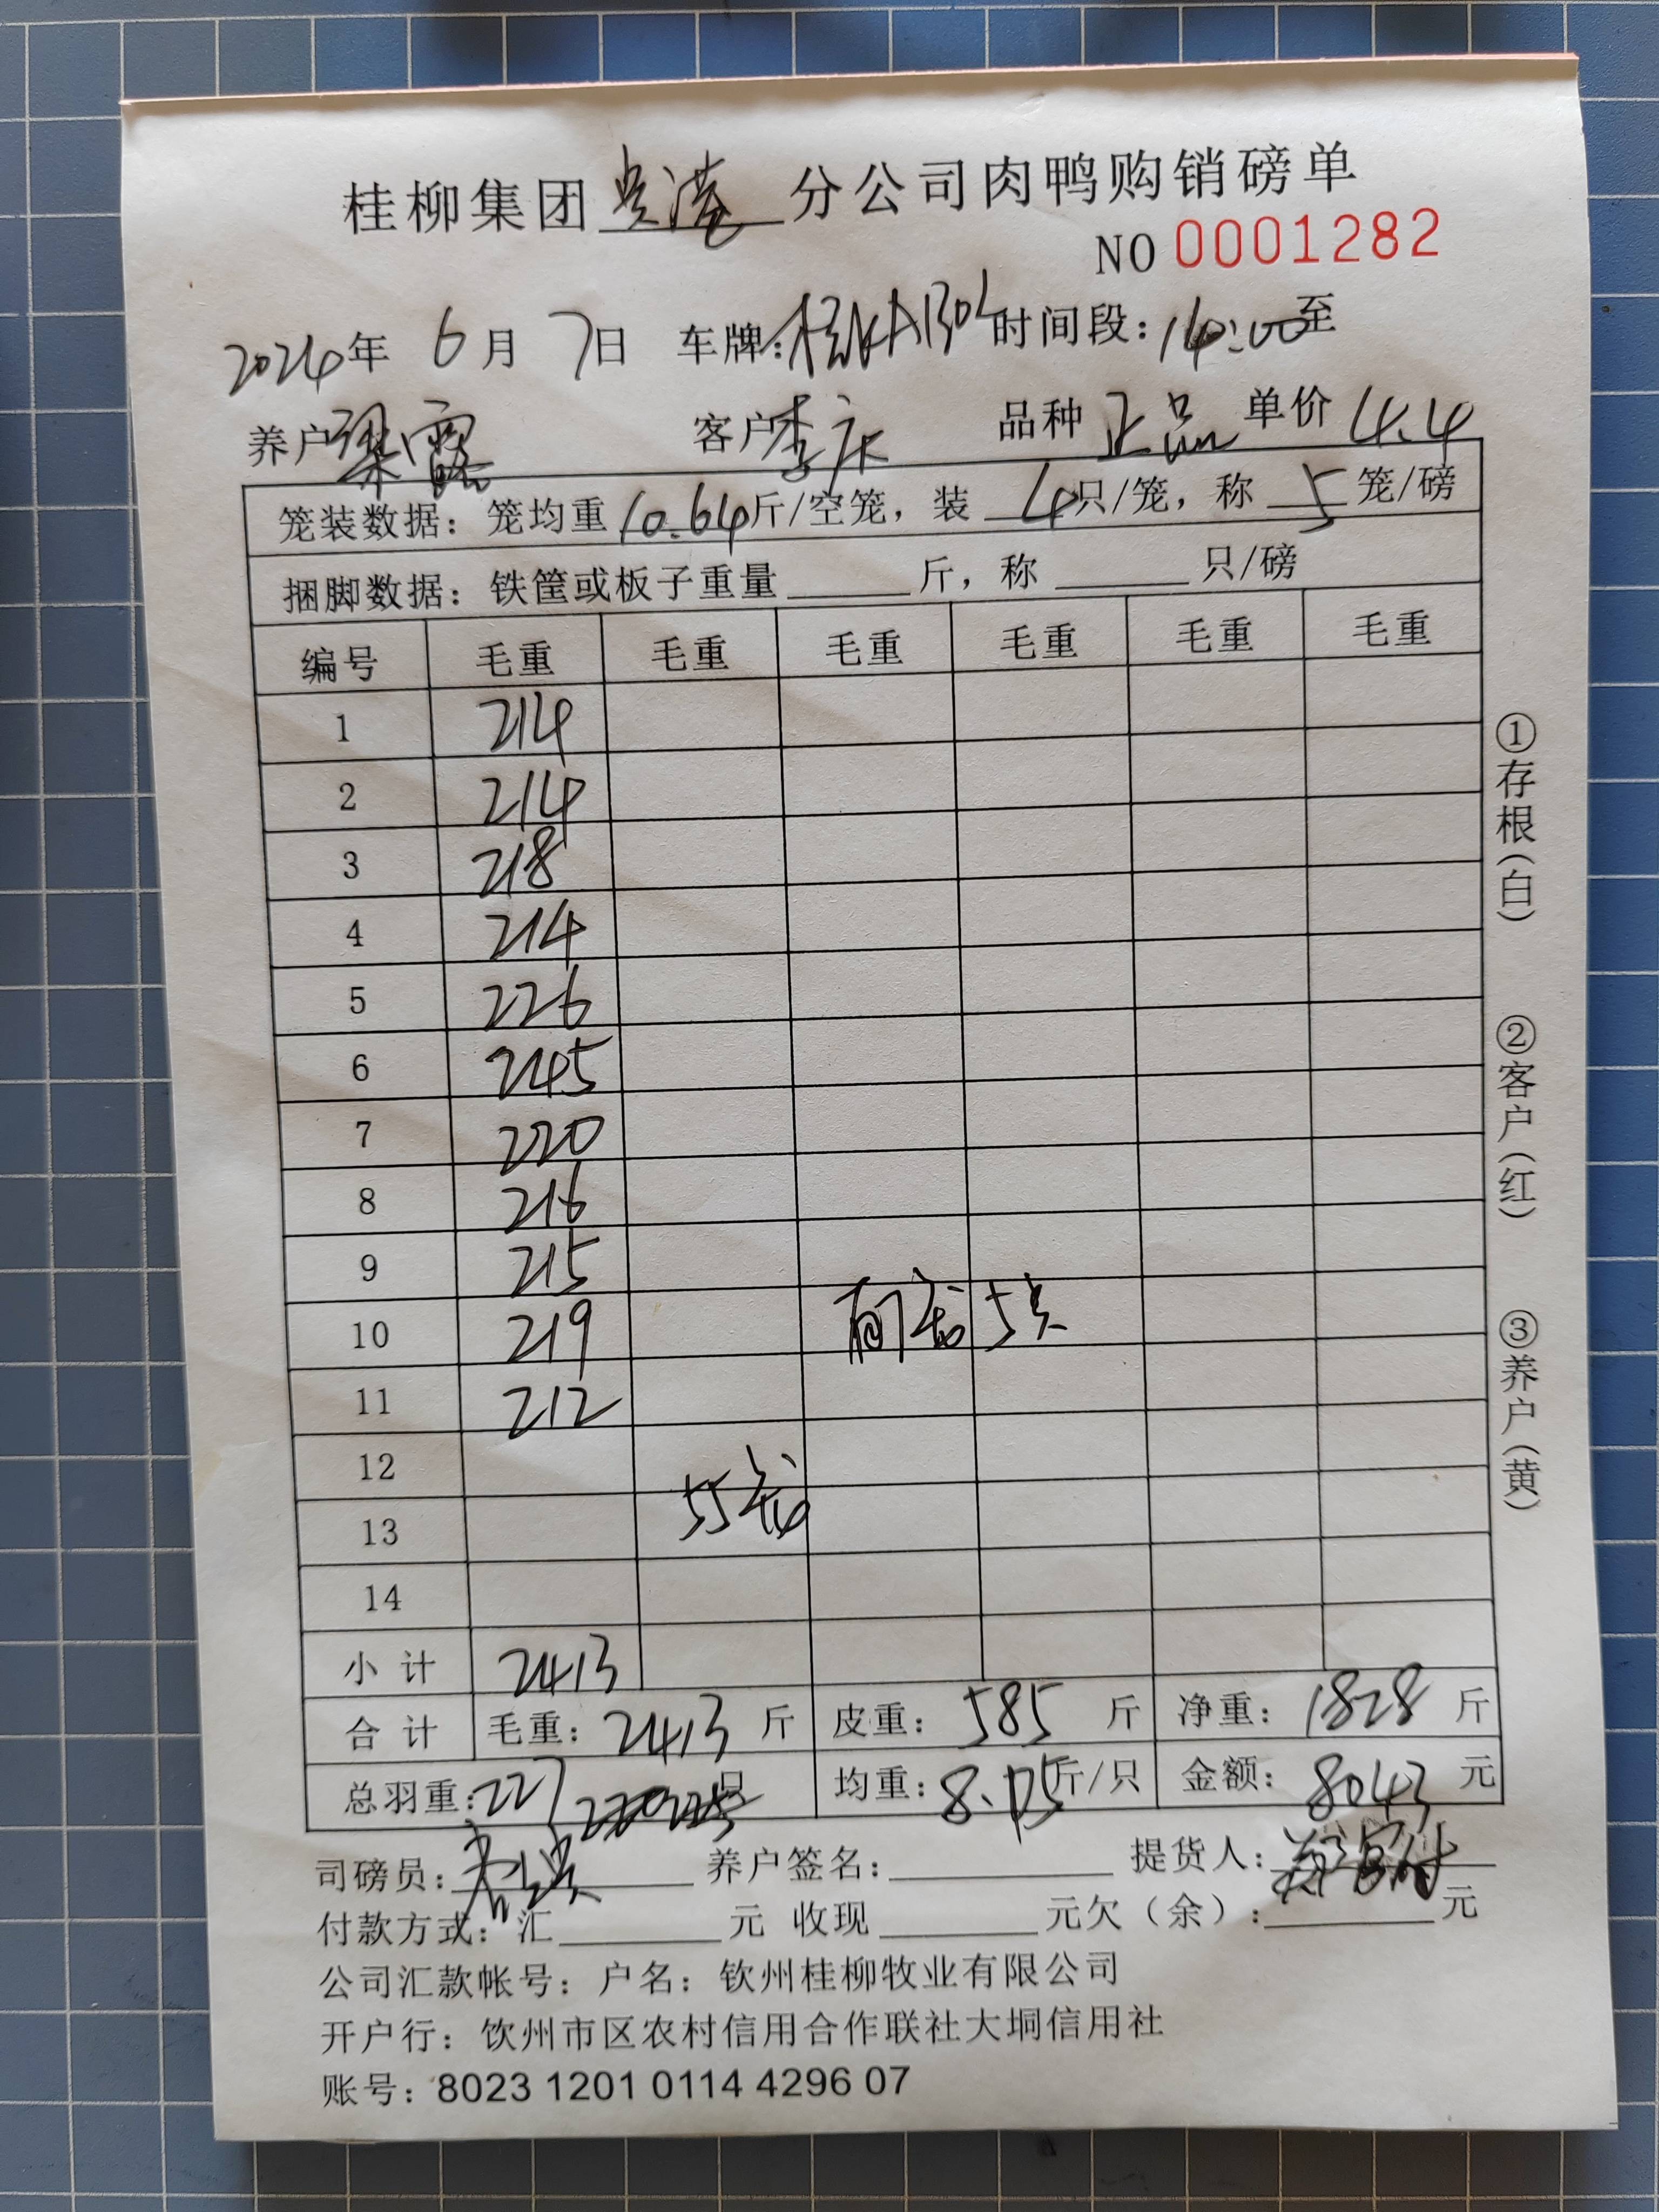 桂柳集团贵港分公司肉鸭购销磅单
NO 0001282
2024年 6月 7日 车牌: 时间段: 14:00至
养户梁霞 客户李庆 品种 正品 单价 4.4
笼装数据: 笼均重10.64斤/空笼, 装 4只/笼, 称 5 笼/磅
捆脚数据: 铁筐或板子重量______斤, 称______只/磅
编号 毛重 毛重 毛重 毛重 毛重 毛重
1 214
2 214
3 218
4 214
5 226
6 245
7 220
8 216
9 215
10 219 有1笼5只
11 212
12
13 55笼
14
小计 2413
合计 毛重: 2413 斤 皮重: 585 斤 净重: 1828 斤
总羽重: 227 只 均重: 8.05斤/只 金额: 8043 元
司磅员: 养户签名:______ 提货人:
付款方式: 汇______元 收现______元欠(余):______元
公司汇款帐号: 户名: 钦州桂柳牧业有限公司
开户行: 饮州市区农村信用合作联社大垌信用社
账号: 8023 1201 0114 4296 07
①存根(白)
②客户(红)
③养户(黄)